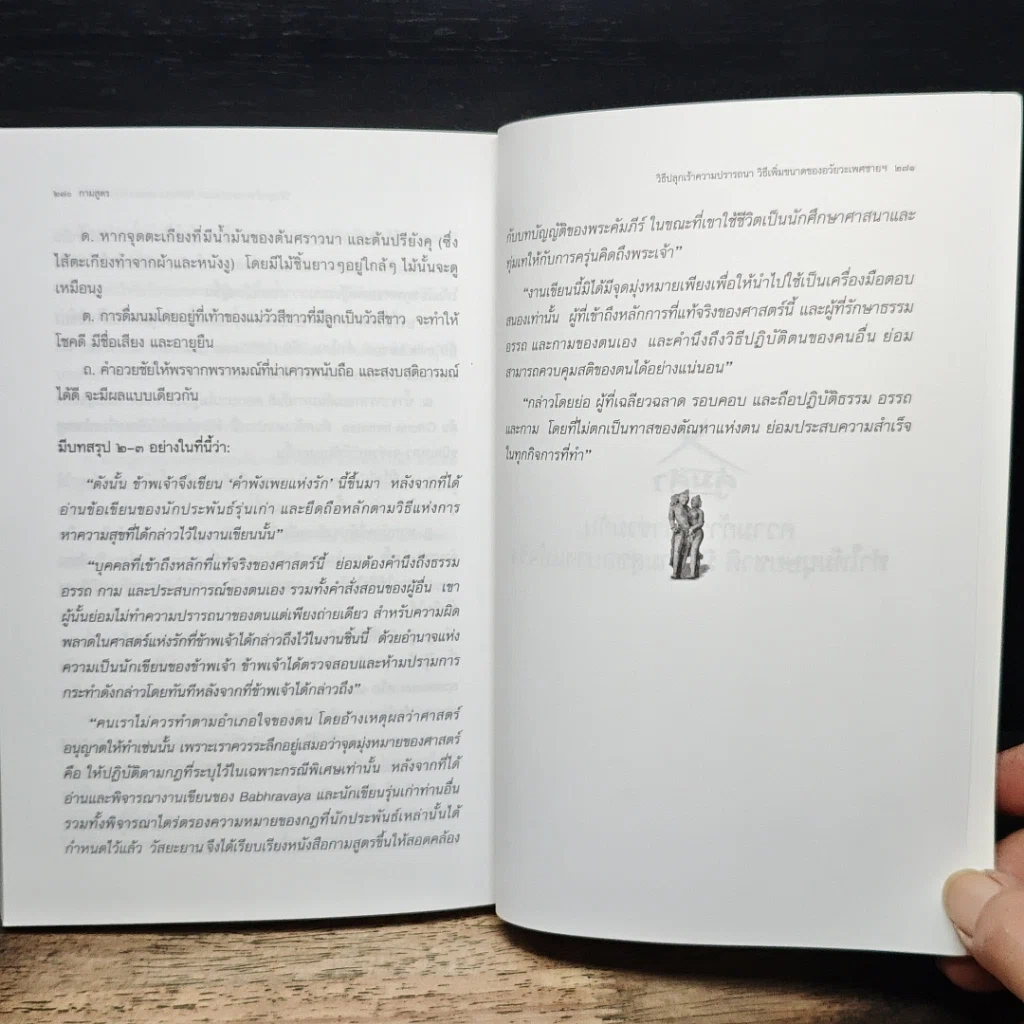 ๒๗๐ กามสูตร
ด. หากจุดตะเกียงที่มีน้ำมันของต้นศราวนา และต้นปรียังคุ (ซึ่ง
ไส้ตะเกียงทำจากผ้าและหนังงู) โดยมีไม้ชิ้นยาวๆอยู่ใกล้ๆ ไม้นั้นจะดู
เหมือนงู
ต. การดื่มนมโดยอยู่ที่เท้าของแม่วัวสีขาวที่มีลูกเป็นวัวสีขาว จะทำให้
โชคดี มีชื่อเสียง และอายุยืน
ถ. คำอวยชัยให้พรจากพราหมณ์ที่น่าเคารพนับถือ และสงบสติอารมณ์
ได้ดี จะมีผลแบบเดียวกัน
มีบทสรุป ๒-๓ อย่างในที่นี้ว่า:
“ดังนั้น ข้าพเจ้าจึงเขียน ‘คำพังเพยแห่งรัก’ นี้ขึ้นมา หลังจากที่ได้
อ่านข้อเขียนของนักประพันธ์รุ่นเก่า และยึดถือหลักตามวิธีแห่งการ
หาความสุขที่ได้กล่าวไว้ในงานเขียนนั้น”
“บุคคลที่เข้าถึงหลักที่แท้จริงของศาสตร์นี้ ย่อมต้องคำนึงถึงธรรม
อรรถ กาม และประสบการณ์ของตนเอง รวมทั้งคำสั่งสอนของผู้อื่น เขา
ผู้นั้นย่อมไม่ทำความปรารถนาของตนแต่เพียงถ่ายเดียว สำหรับความผิด
พลาดในศาสตร์แห่งรักที่ข้าพเจ้าได้กล่าวถึงไว้ในงานชิ้นนี้ ด้วยอำนาจแห่ง
ความเป็นนักเขียนของข้าพเจ้า ข้าพเจ้าได้ตรวจสอบและห้ามปรามการ
กระทำดังกล่าวโดยทันทีหลังจากที่ข้าพเจ้าได้กล่าวถึง”
“คนเราไม่ควรทำตามอำเภอใจของตน โดยอ้างเหตุผลว่าศาสตร์
อนุญาตให้ทำเช่นนั้น เพราะเราควรระลึกอยู่เสมอว่าจุดมุ่งหมายของศาสตร์
คือ ให้ปฏิบัติตามกฎที่ระบุไว้ในเฉพาะกรณีพิเศษเท่านั้น หลังจากที่ได้
อ่านและพิจารณางานเขียนของ Babhravaya และนักเขียนรุ่นเก่าท่านอื่น
รวมทั้งพิจารณาไตร่ตรองความหมายของกฎที่นักประพันธ์เหล่านั้นได้
กำหนดไว้แล้ว วัสยะยาน จึงได้เรียบเรียงหนังสือกามสูตรขึ้นให้สอดคล้อง
วิธีปลุกเร้าความปรารถนา วิธีเพิ่มขนาดของอวัยวะเพศชายฯ ๒๗๑
กับบทบัญญัติของพระคัมภีร์ ในขณะที่เขาใช้ชีวิตเป็นนักศึกษาศาสนาและ
ทุ่มเทให้กับการครุ่นคิดถึงพระเจ้า”
“งานเขียนนี้มิได้มีจุดมุ่งหมายเพียงเพื่อให้นำไปใช้เป็นเครื่องมือตอบ
สนองเท่านั้น ผู้ที่เข้าถึงหลักการที่แท้จริงของศาสตร์นี้ และผู้ที่รักษาธรรม
อรรถ และกามของตนเอง และคำนึงถึงวิธีปฏิบัติตนของคนอื่น ย่อม
สามารถควบคุมสติของตนได้อย่างแน่นอน”
“กล่าวโดยย่อ ผู้ที่เฉลียวฉลาด รอบคอบ และถือปฏิบัติธรรม อรรถ
และกาม โดยที่ไม่ตกเป็นทาสของตัณหาแห่งตน ย่อมประสบความสำเร็จ
ในทุกกิจการที่ทำ”